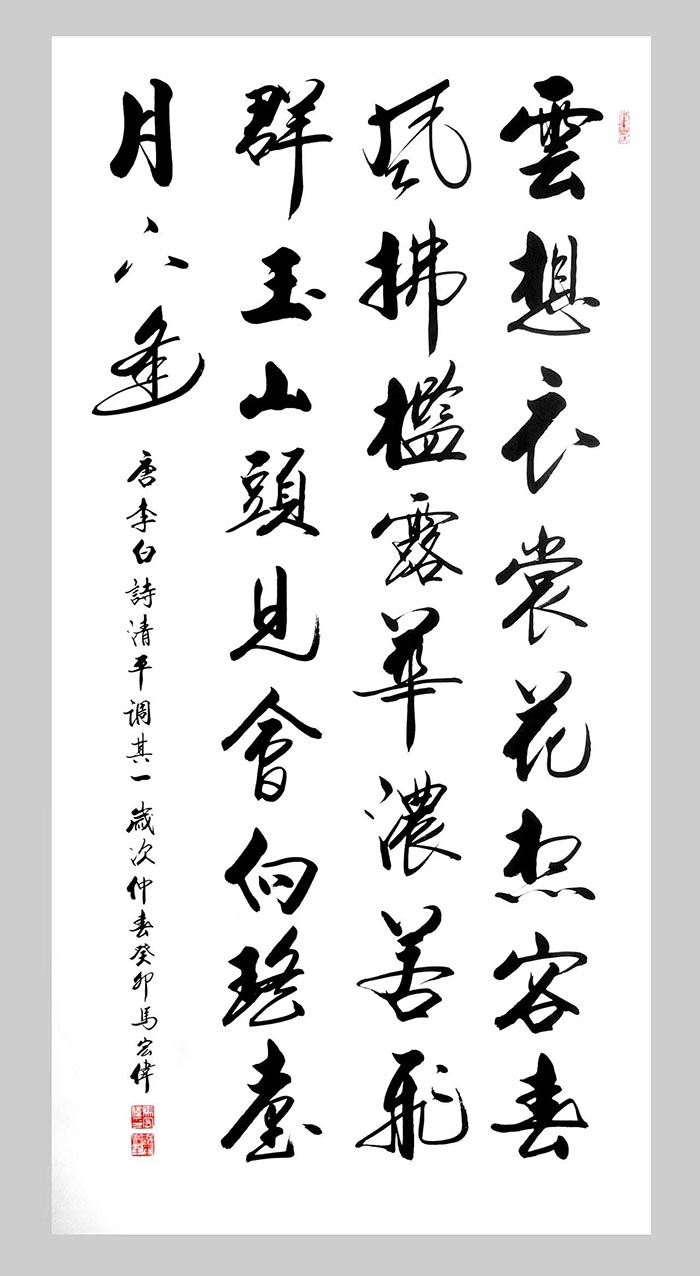 雲想衣裳花想容春
風拂檻露華濃若非
群玉山頭見會向瑤臺
月下逢
唐李白詩清平调其一歲次仲春癸卯馬宏偉